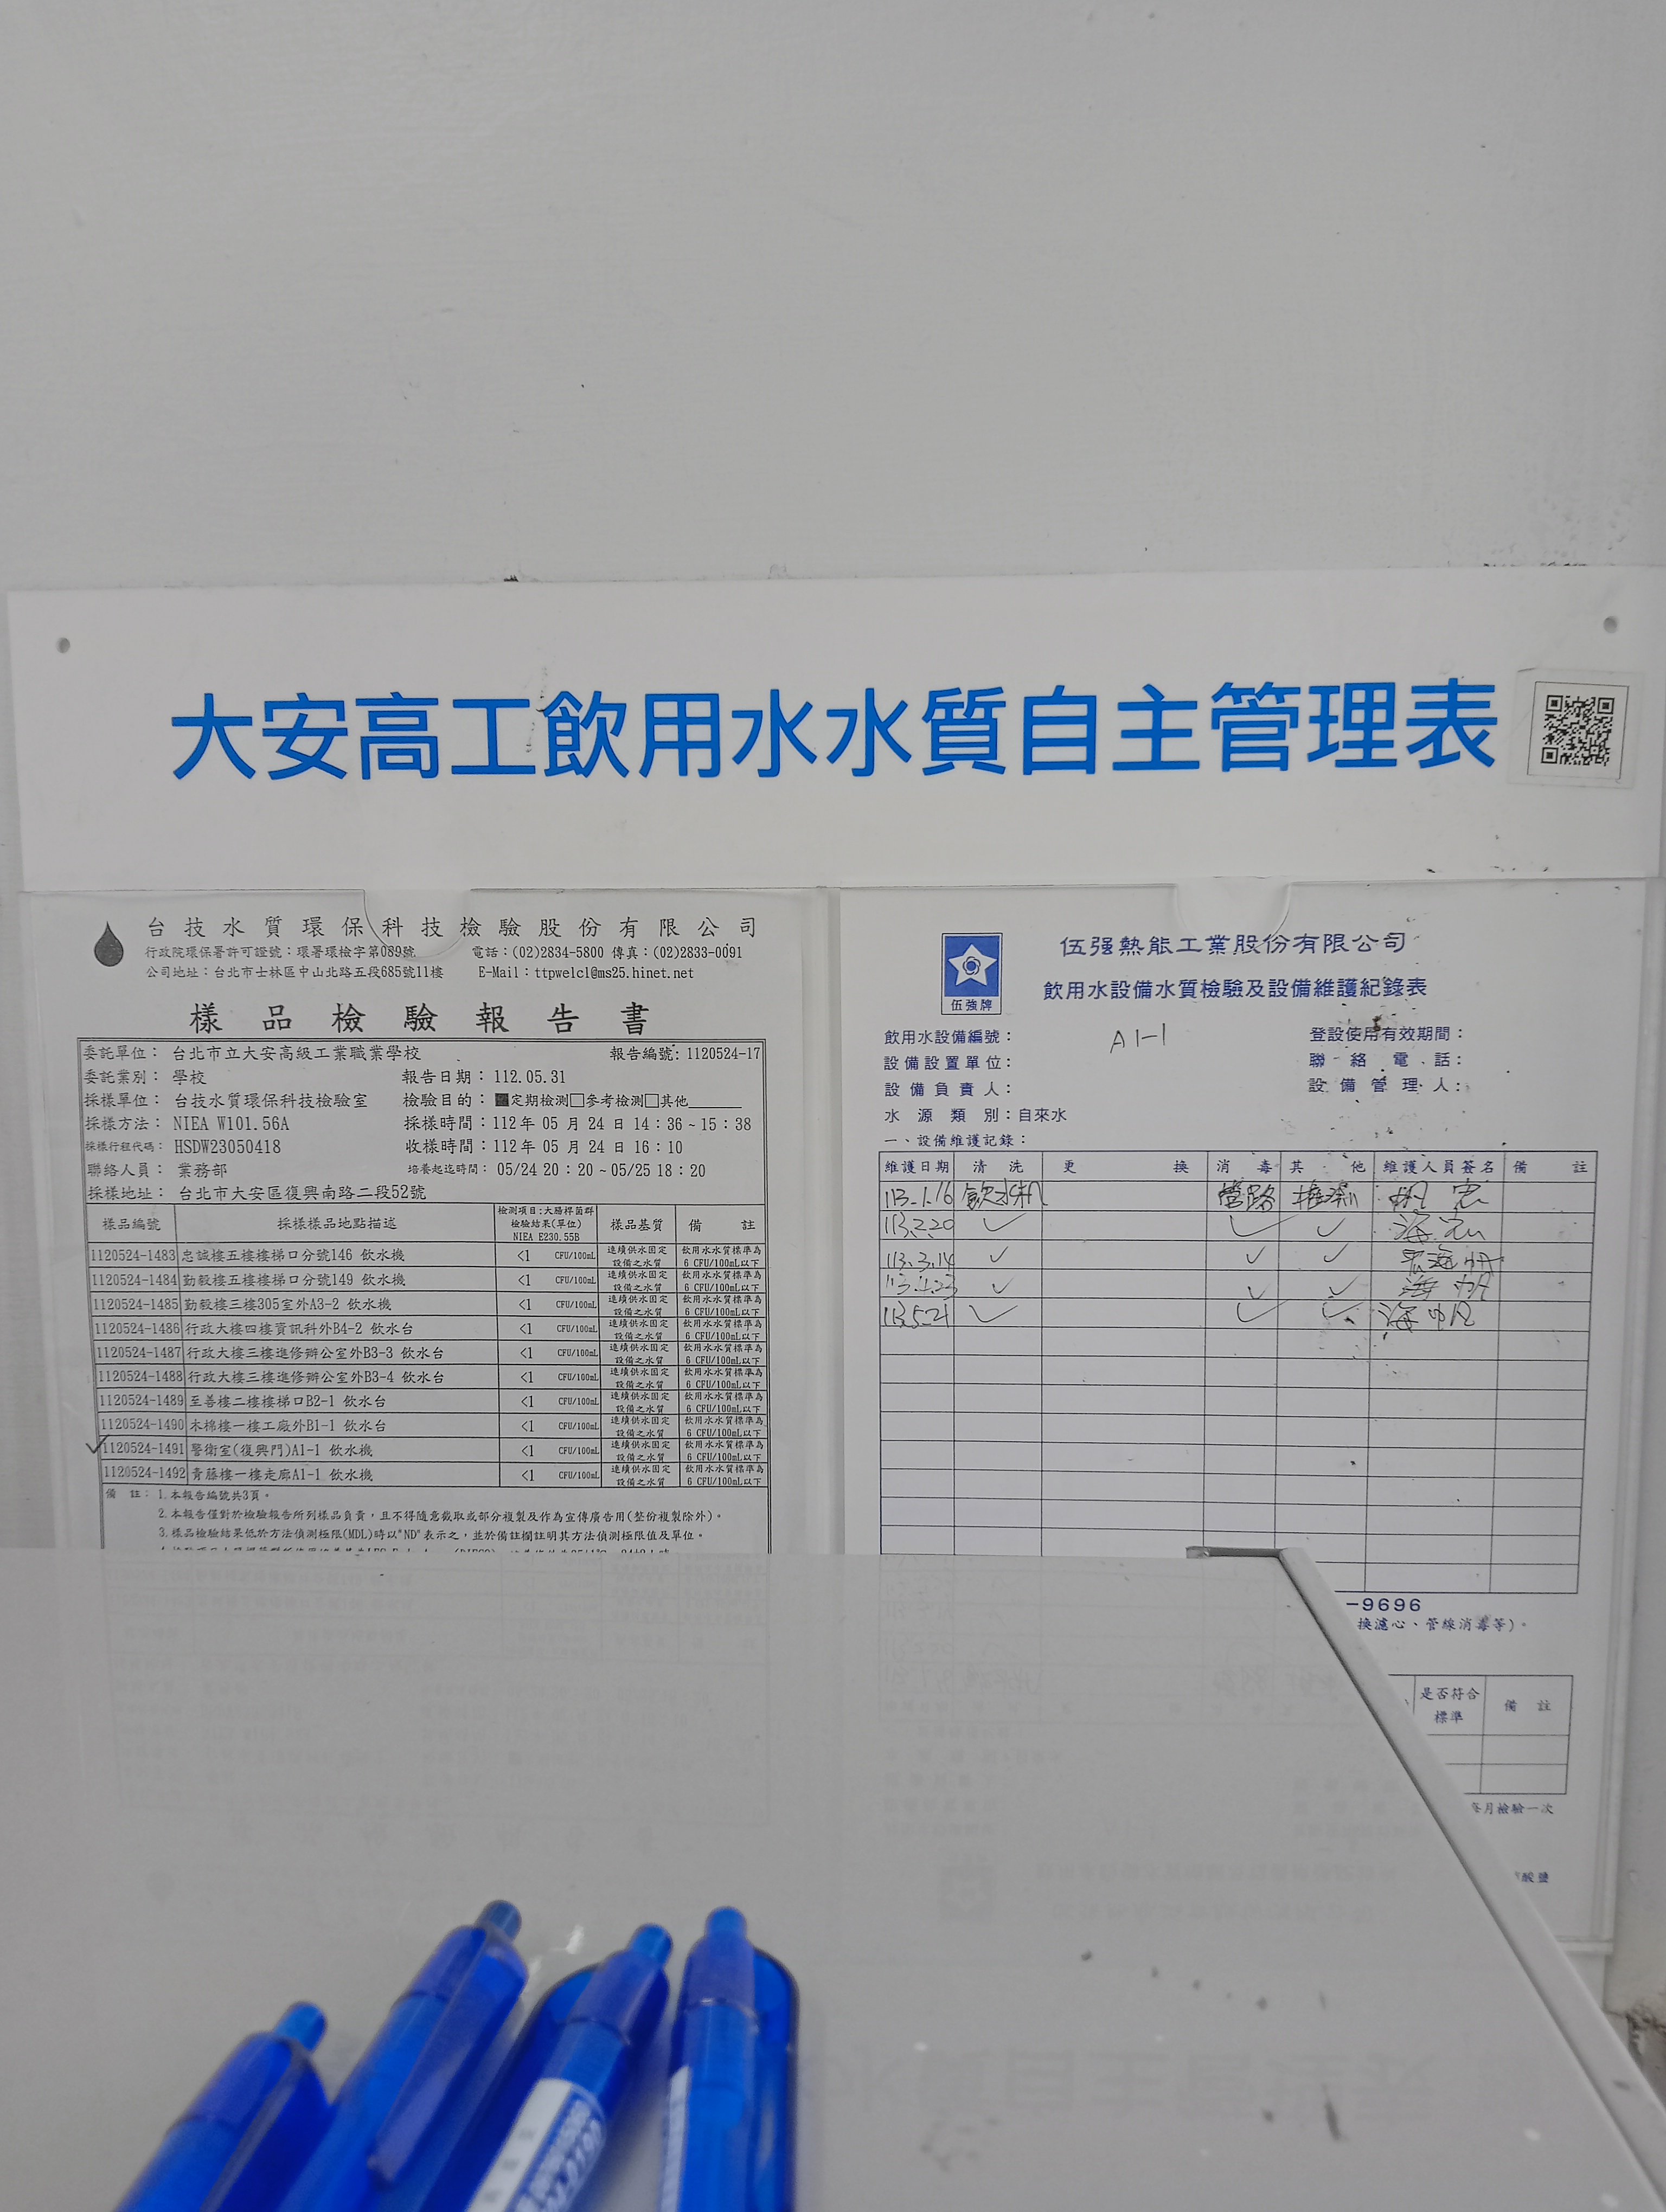 大安高工飲用水水質自主管理表
台技水質環保科技檢驗股份有限公司
行政院環保署許可證號：環署環檢字第089號 電話：(02)2834-5800 傳真：(02)2833-0091
公司地址：台北市士林區中山北路五段685號11樓 E-Mail：ttpwelcl@ms25.hinet.net
樣品檢驗報告書
委託單位： 台北市立大安高級工業職業學校 報告編號: 1120524-17
委託業別： 學校 報告日期：112.05.31
採樣單位： 台技水質環保科技檢驗室 檢驗目的：■定期檢測□參考檢測□其他
採樣方法： NIEA W101.56A 採樣時間：112年 05 月 24 日 14：36 ~ 15：38
採樣行程代碼： HSDW23050418 收樣時間：112年 05 月 24 日 16：10
聯絡人員： 業務部 培養起迄時間： 05/24 20：20 ~ 05/25 18：20
採樣地址： 台北市大安區復興南路二段52號
樣品編號 採樣樣品地點描述 檢測項目:大腸桿菌群 檢驗結果(單位) NIEA E230.55B 樣品基質 備註
1120524-1483 忠誠樓五樓樓梯口分號146 飲水機 <1 CFU/100mL 連續供水固定設備之水質 飲用水水質標準為6 CFU/100mL以下
1120524-1484 勤毅樓五樓樓梯口分號149 飲水機 <1 CFU/100mL 連續供水固定設備之水質 飲用水水質標準為6 CFU/100mL以下
1120524-1485 勤毅樓三樓305室外A3-2 飲水機 <1 CFU/100mL 連續供水固定設備之水質 飲用水水質標準為6 CFU/100mL以下
1120524-1486 行政大樓四樓資訊科外B4-2 飲水台 <1 CFU/100mL 連續供水固定設備之水質 飲用水水質標準為6 CFU/100mL以下
1120524-1487 行政大樓三樓進修辦公室外B3-3 飲水台 <1 CFU/100mL 連續供水固定設備之水質 飲用水水質標準為6 CFU/100mL以下
1120524-1488 行政大樓三樓進修辦公室外B3-4 飲水台 <1 CFU/100mL 連續供水固定設備之水質 飲用水水質標準為6 CFU/100mL以下
1120524-1489 至善樓二樓樓梯口B2-1 飲水台 <1 CFU/100mL 連續供水固定設備之水質 飲用水水質標準為6 CFU/100mL以下
1120524-1490 木棉樓一樓工廠外B1-1 飲水台 <1 CFU/100mL 連續供水固定設備之水質 飲用水水質標準為6 CFU/100mL以下
1120524-1491 警衛室(復興門)A1-1 飲水機 <1 CFU/100mL 連續供水固定設備之水質 飲用水水質標準為6 CFU/100mL以下
1120524-1492 青藤樓一樓走廊A1-1 飲水機 <1 CFU/100mL 連續供水固定設備之水質 飲用水水質標準為6 CFU/100mL以下
備註：1.本報告編號共3頁。
2.本報告僅對於檢驗報告所列樣品負責，且不得隨意截取或部分複製及作為宣傳廣告用(整份複製除外)。
3.樣品檢驗結果低於方法偵測極限(MDL)時以"ND"表示之，並於備註欄註明其方法偵測極限值及單位。
伍強牌
伍強熱能工業股份有限公司
飲用水設備水質檢驗及設備維護紀錄表
飲用水設備編號： A1-1 登設使用有效期間：
設備設置單位： 聯絡電話：
設備負責人： 設備管理人：
水源類別：自來水
一、設備維護記錄：
維護日期 清洗 更換 消毒 其他 維護人員簽名 備註
113.1.16 飲水機 管路
113.2.20 ✓ ✓ ✓
113.3.14 ✓ ✓ ✓
113.4.23 ✓ ✓ ✓
113.5.21 ✓ ✓ ✓
-9696
換濾心、管線消毒等)。
是否符合標準 備註
月檢驗一次
酸鹽